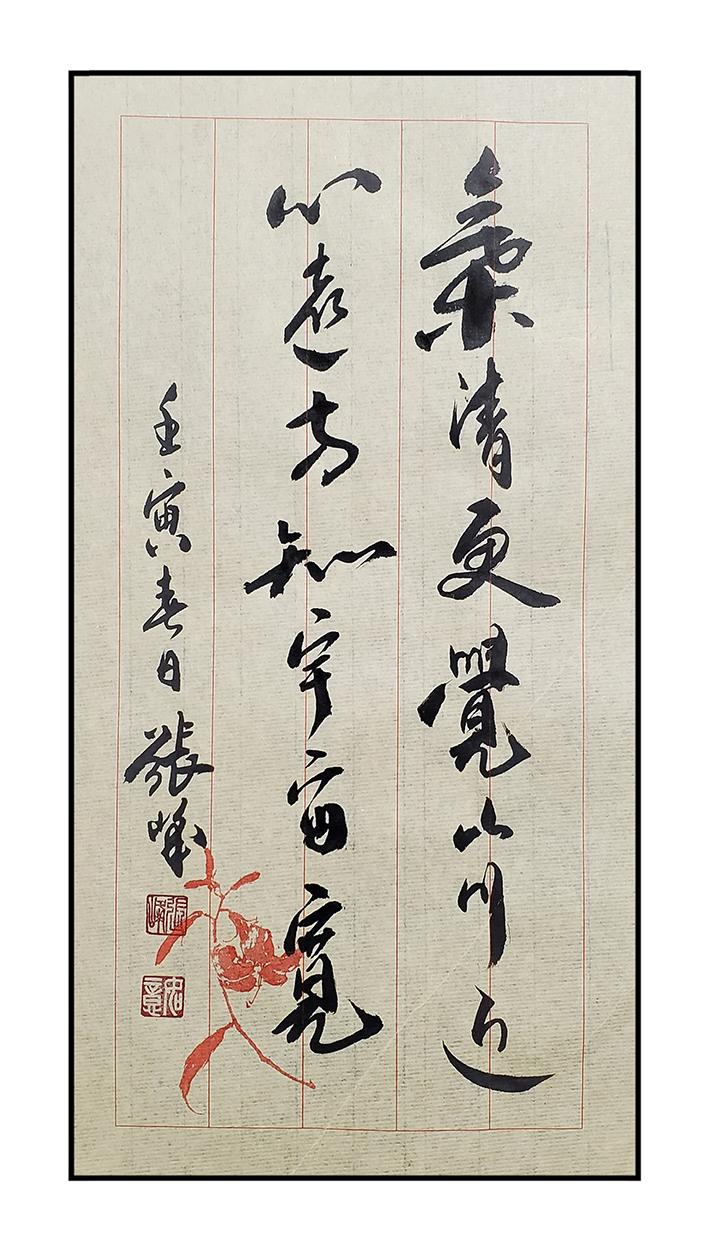 氣清更覺山川近
心遠方知宇宙寬
壬寅春日張峰
張峰